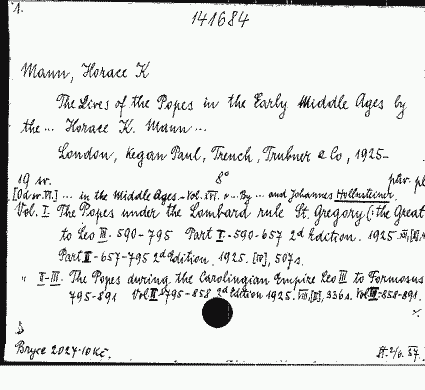 1.
141684
Mann, Horace K
The Lives of the Popes in the Early Middle Ages by
the ... Horace K. Mann ...
London, Kegan Paul, Trench, Trubner & Co, 1925-
19 sv. 8°
... in the Middle Ages.- Vol. XVI. ... By ... and Johannes Hollnsteiner.
Vol. I. The Popes under the Lombard rule St. Gregory (the Great
to Leo III. 590-795 Part I-590-657 2d Edition. 1925.
Part II-657-795 2d Edition. 1925. [IV], 507s.
" II-III. The Popes during the Carolingian Empire Leo III to Formosus
795-891 Vol II-795-858 2d Edition 1925. VIII,[II], 336s. Vol III-858-891.
Bryce 2027-10Kč.